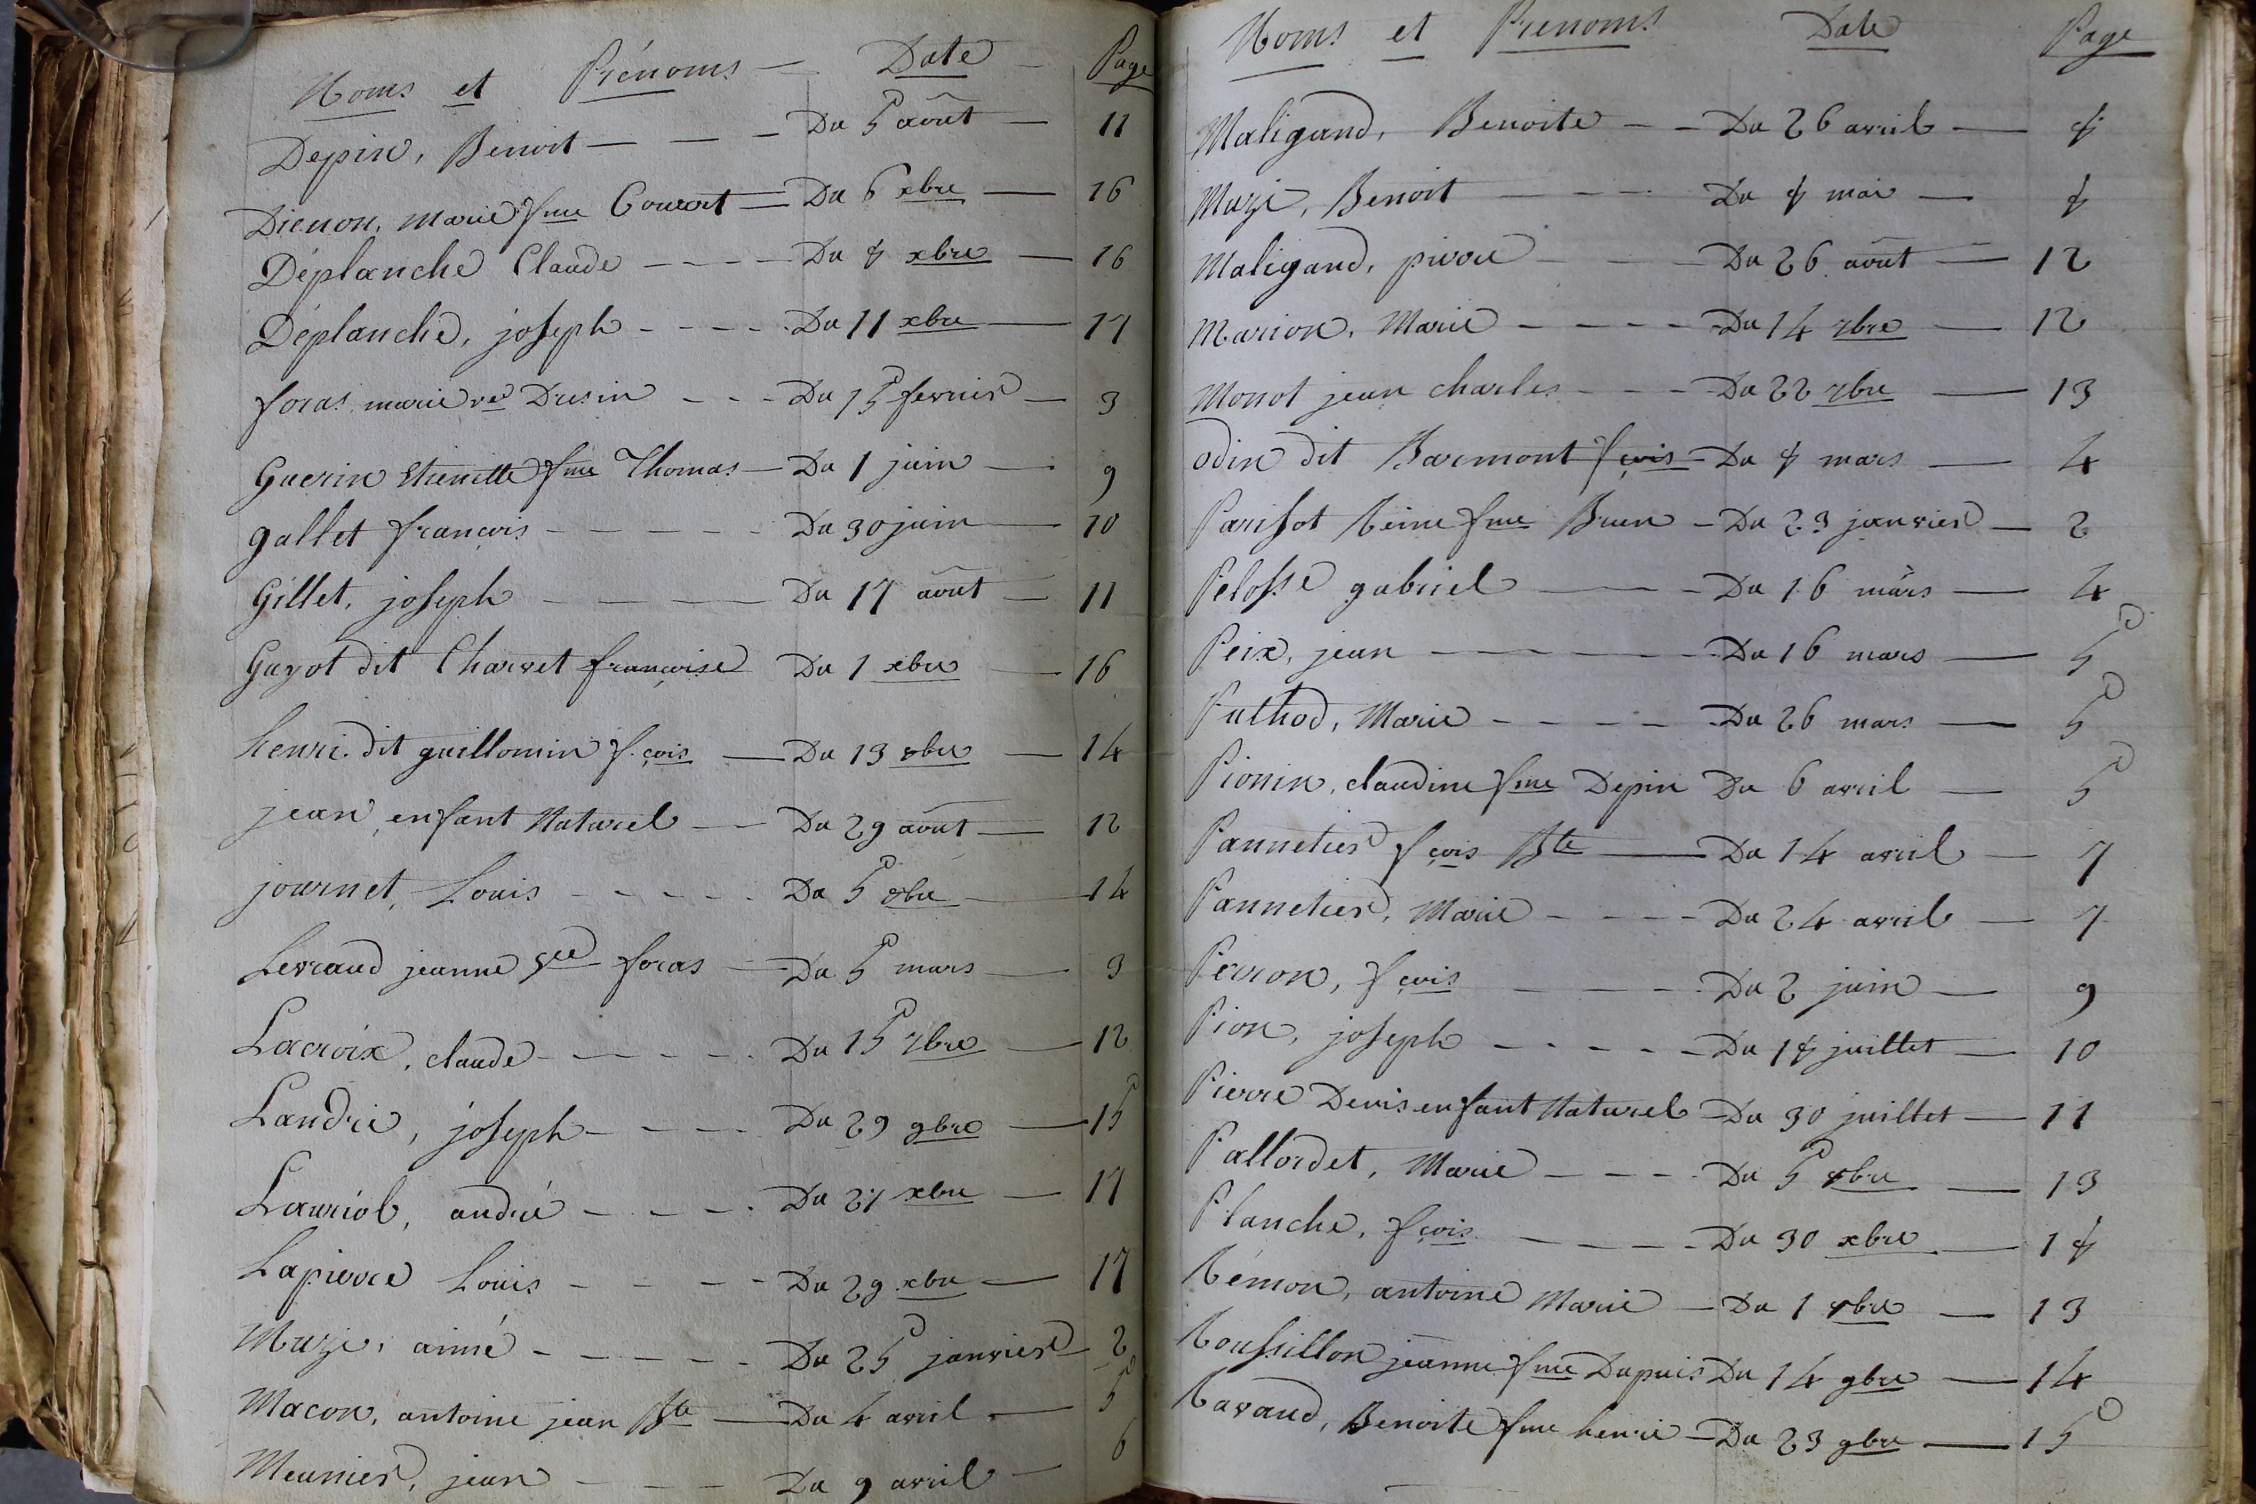 Noms et Prénoms — Date — Page
Depin, Benoit — — — Du 5 août — 11
Dienon, marie fme Couvert — Du 6 xbre — 16
Déplanche Claude — — — Du 8 xbre — 16
Déplanche, joseph — — — Du 11 xbre — 17
foras marie ve Dresin — — — Du 15 fevrier — 3
Guerin etienette fme Thomas — Du 1 juin — 9
gallet françois — — — Du 30 juin — 10
Gillet, joseph — — — Du 17 août — 11
Guyot dit Charvet françoise Du 1 xbre — 16
henri dit guillomin f.çois — Du 13 8bre — 14
jean, enfant Naturel — Du 29 août — 12
journet, Louis — — — Du 5 8bre — 14
Levraud jeanne vve foras — Du 5 mars — 3
Lacroix, claude — — — Du 15 7bre — 12
Landrie, joseph — — — Du 29 9bre — 15
Lauriol, andré — — — Du 27 xbre — 17
Lapierre Louis — — — Du 29 xbre — 17
Muzi, aimé — — — Du 25 janvier — 2
Macon, antoine jean Bte — Du 4 avril — 5
Meunier, jean — — — Du 9 avril — 6
Noms et Prenoms Date Page
Maligand, Benoite — — Du 26 avril — 8
Muzi, Benoit — — — Du 8 mai — 8
Maligand, pierre — — Du 26 août — 12
Marion, Marie — — — Du 14 7bre — 12
Monot jean charles — — — Du 22 7bre — 13
odin dit Barmont fçois — Du 8 mars — 4
Parissot Reine fme Brun — Du 23 janvier — 2
Pelosse gabriel — — Du 16 mars — 4
Peix, jean — — — Du 16 mars — 5
Puthod, Marie — — — Du 26 mars — 5
Pionin, claudine fme Depin Du 6 avril — 5
Pannetier fçois Bte — Du 14 avril — 7
Pannetier, Marie — — — Du 24 avril — 7
Perron, fçois — — — Du 2 juin — 9
Pion, joseph — — — Du 18 juillet — 10
Pierre Denis enfant Naturel — Du 30 juillet — 11
Pallordet, Marie — — — Du 5 8bre — 13
Planche, fçois — — — Du 30 xbre — 18
Rémon, antoine Marie — Du 1 8bre — 13
Roussillon jeanne fme Dupuis Du 14 9bre — 14
Ravaud, Benoite fme henri — Du 23 9bre — 15